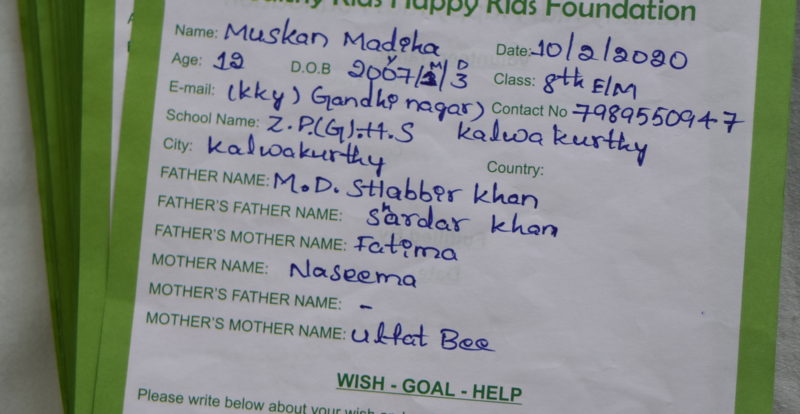 Healthy Kids Happy Kids Foundation
Name: Muskan Madiha Date: 10/2/2020
Age: 12 D.O.B 2007/2/3 Class: 8th E/M
Y M D
E-mail: (kky) Gandhi nagar) Contact No 7989550947
School Name: Z.P.(G).H.S kalwa kurthy
City: kalwakurthy Country:
FATHER NAME: M.D. SHabbir khan
FATHER'S FATHER NAME: Shardar khan
FATHER'S MOTHER NAME: Fatima
MOTHER NAME: Naseema
MOTHER'S FATHER NAME: -
MOTHER'S MOTHER NAME: Ulfat Bee
WISH - GOAL - HELP
Please write below about your wish